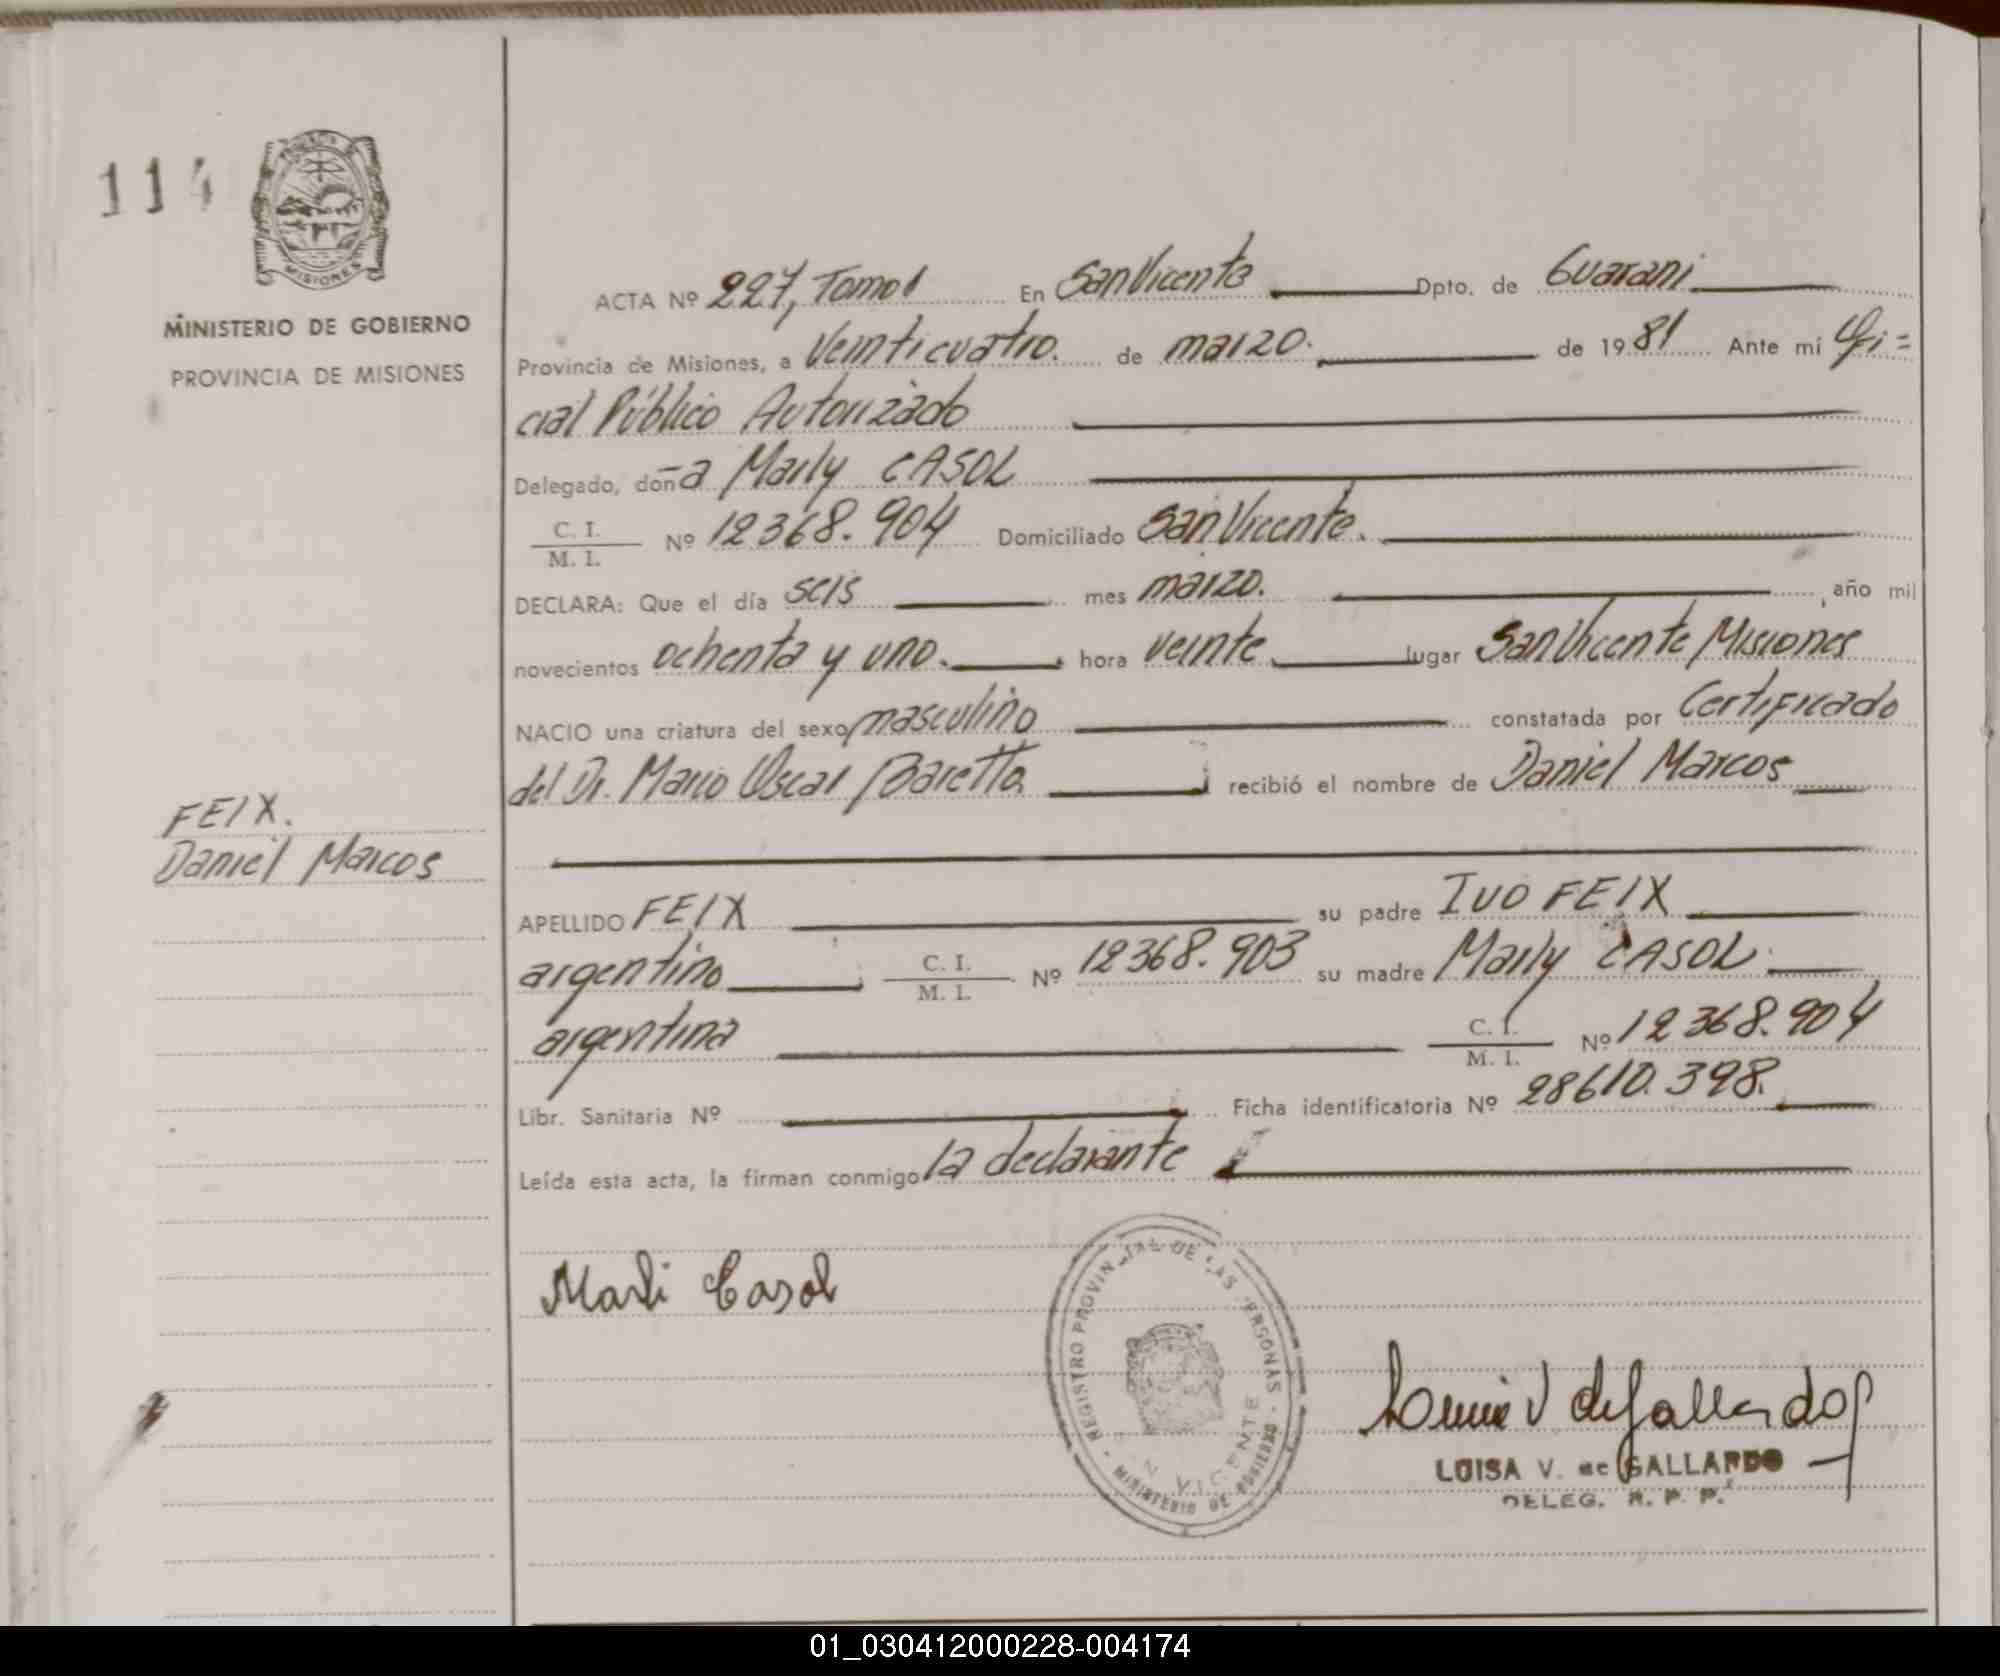 114
MISIONES
MINISTERIO DE GOBIERNO
PROVINCIA DE MISIONES
FEIX.
Daniel Marcos
ACTA Nº 227, Tomo I En San Vicente Dpto. de Guarani
Provincia de Misiones, a Veinticuatro. de marzo. de 1981 Ante mí Ofi=
cial Público Autorizado
Delegado, doña Marly CASOL
C. I. / M. I. Nº 12368.904 Domiciliado San Vicente.
DECLARA: Que el día seis mes marzo. , año mil
novecientos ochenta y uno. hora veinte lugar San Vicente Misiones
NACIO una criatura del sexo masculino constatada por Certificado
del Dr. Mario Oscar Baretto recibió el nombre de Daniel Marcos
APELLIDO FEIX su padre IVO FEIX
argentino C. I. / M. I. Nº 12368.903 su madre Marly CASOL
argentina C. I. / M. I. Nº 12368.904
Libr. Sanitaria Nº Ficha identificatoria Nº 28610.398.
Leída esta acta, la firman conmigo la declarante
Marli Casol
REGISTRO PROVINCIAL DE LAS PERSONAS - MINISTERIO DE GOBIERNO -
SAN VICENTE
Luisa V de Gallardo
LUISA V. de GALLARDO
DELEG. R. P. P.
01_030412000228-004174